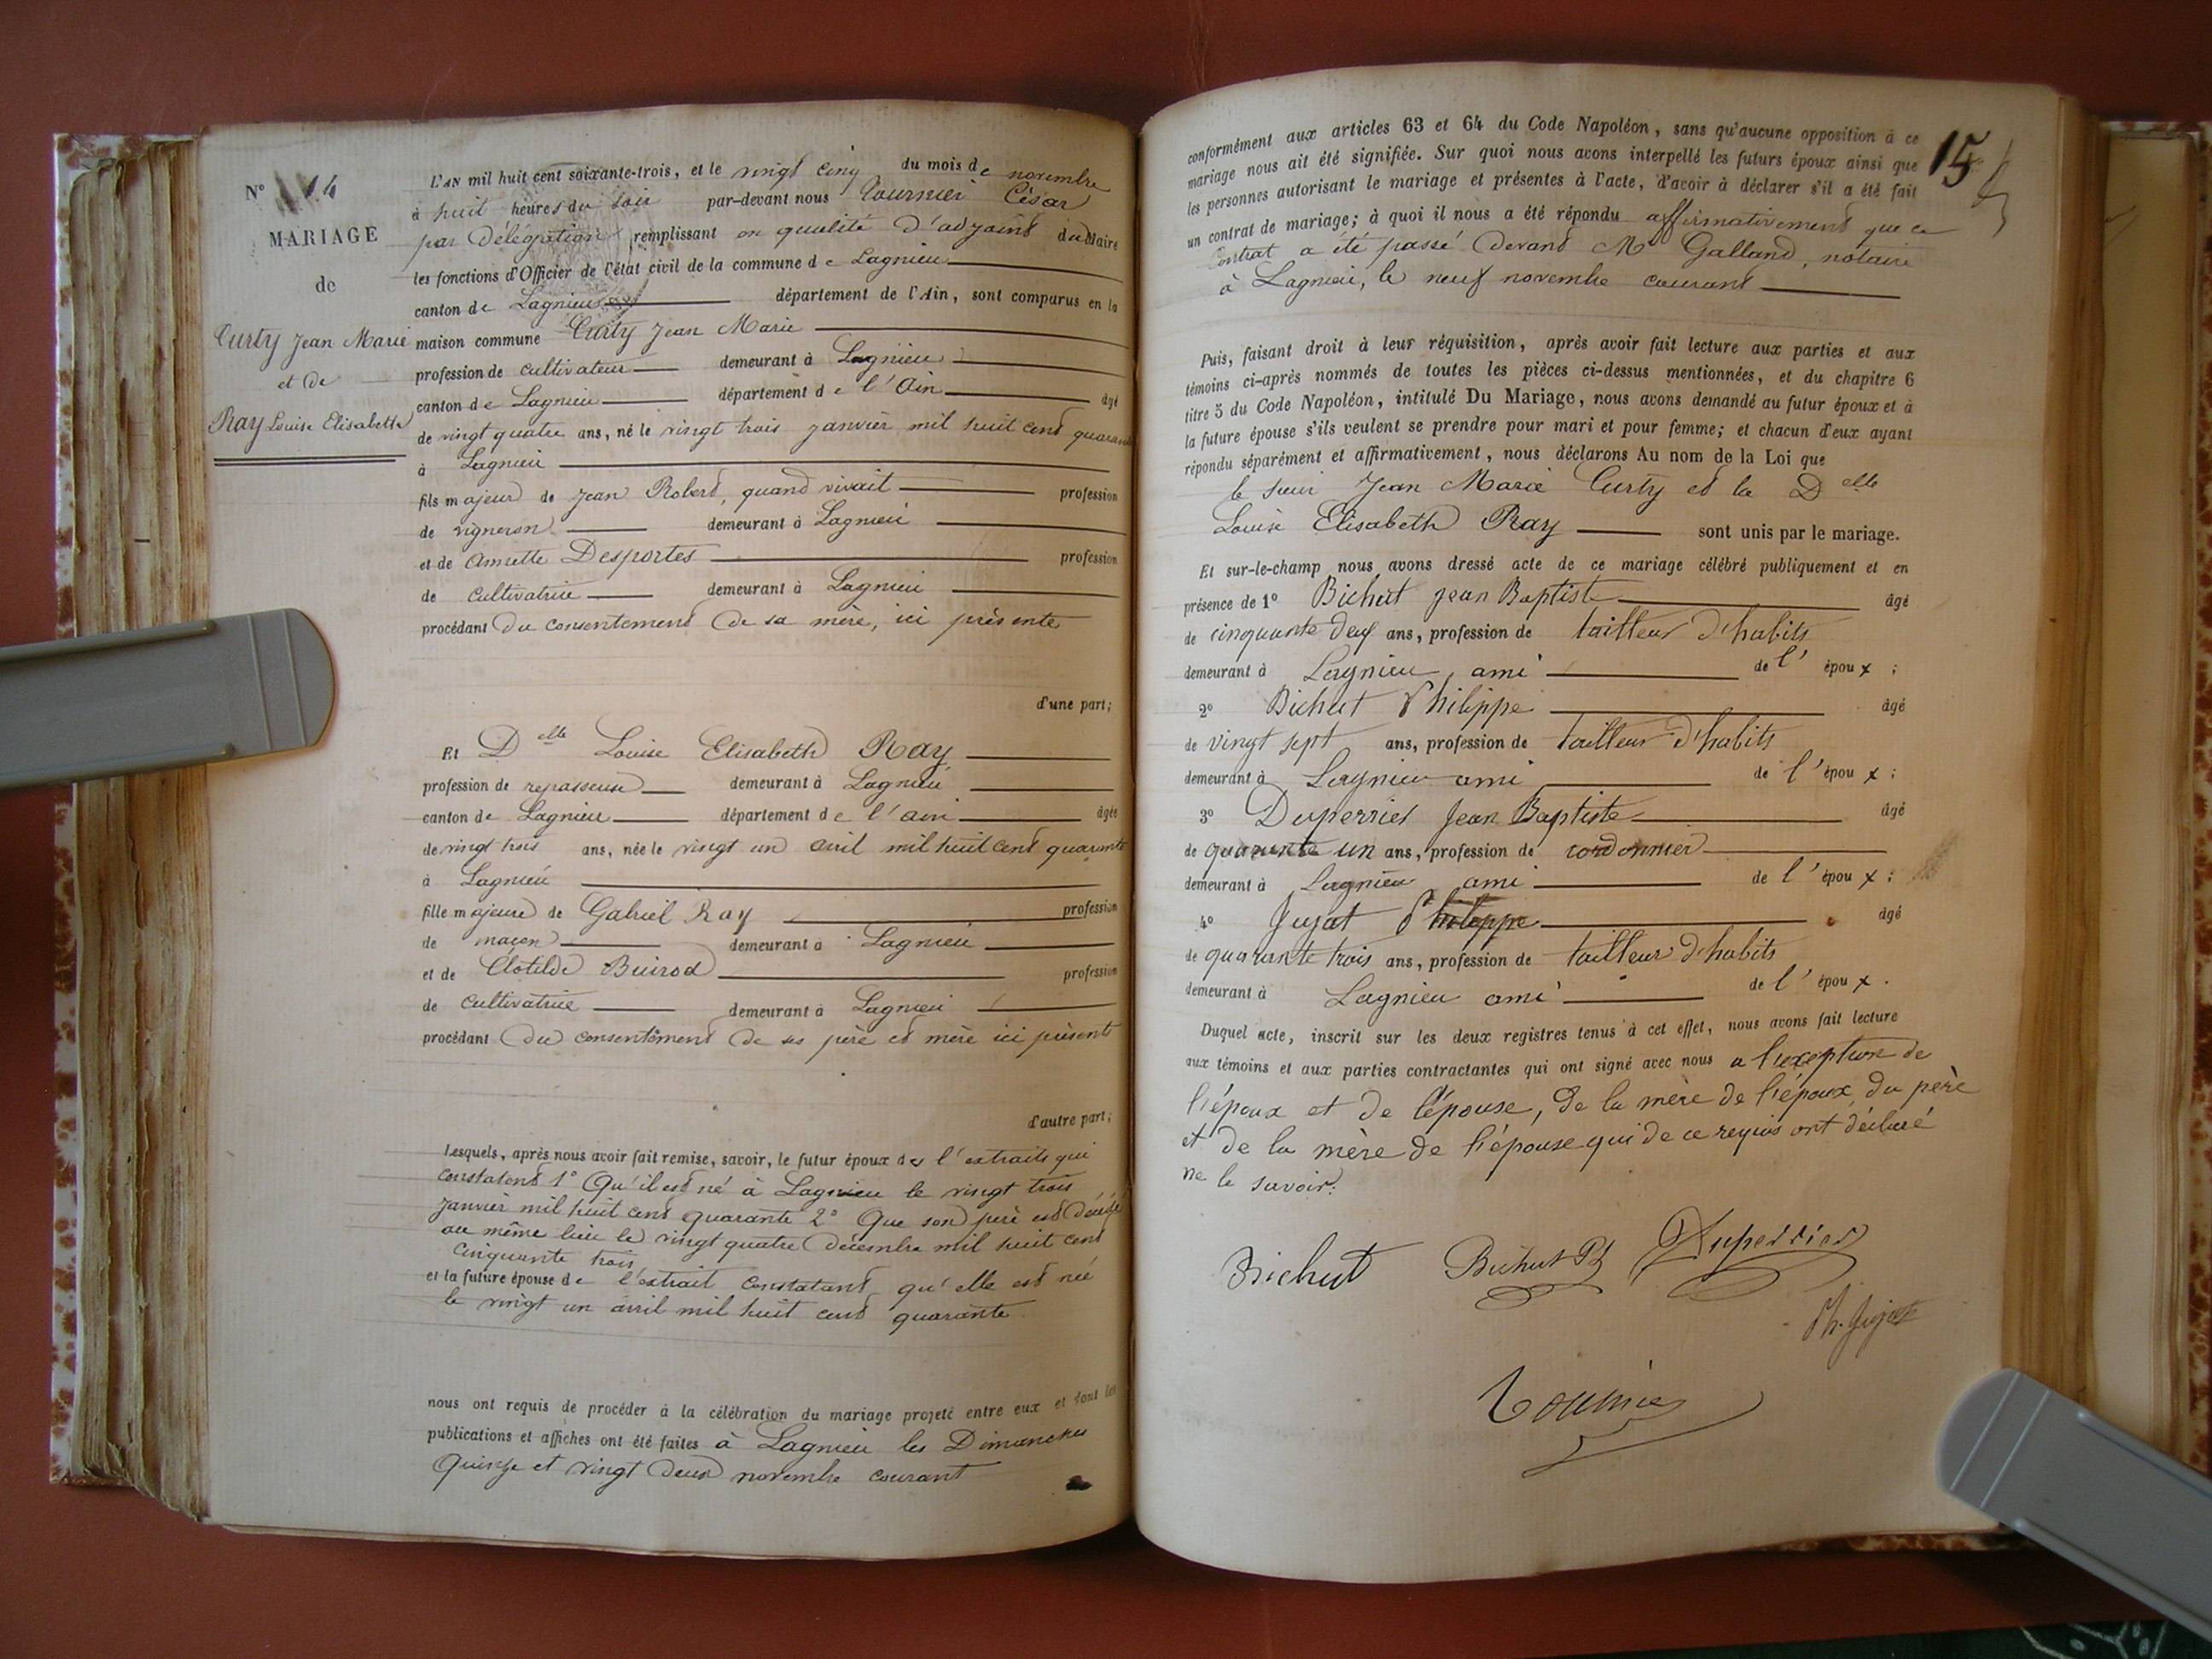 N° 14
MARIAGE
de
Curty Jean Marie
et de
Ray Louise Elisabeth
L'AN mil huit cent soixante-trois, et le vingt cinq du mois de novembre
à huit heures du soir par-devant nous Tournier César
par Délégation remplissant en qualité d'adjoint du Maire
les fonctions d'Officier de l'état civil de la commune de Lagnieu
canton de Lagnieu département de l'Ain, sont comparus en la
maison commune Curty Jean Marie
profession de cultivateur demeurant à Lagnieu
canton de Lagnieu département de l'Ain âgé
de vingt quatre ans, né le vingt trois janvier mil huit cent quarante
à Lagnieu
fils majeur de Jean Robert, quand vivait profession
de vigneron demeurant à Lagnieu
et de Annette Desportes profession
de cultivatrice demeurant à Lagnieu
procédant du consentement de sa mère, ici présente
d'une part;
Et Delle Louise Elisabeth Ray
profession de repasseuse demeurant à Lagnieu
canton de Lagnieu département de l'ain âgée
de vingt trois ans, née le vingt un avril mil huit cent quarante
à Lagnieu
fille majeure de Gabriel Ray profession
de maçon demeurant à Lagnieu
et de Clotilde Buirod profession
de cultivatrice demeurant à Lagnieu
procédant du consentement de ses père et mère ici présents
d'autre part;
Lesquels, après nous avoir fait remise, savoir, le futur époux des l'extraits qui
constatent 1° Qu'il est né à Lagnieu le vingt trois
janvier mil huit cent quarante 2° Que son père est décédé
au même lieu le vingt quatre décembre mil huit cent
cinquante trois
et la future épouse de l'extrait constatant qu'elle est née
le vingt un avril mil huit cent quarante
nous ont requis de procéder à la célébration du mariage projeté entre eux et dont les
publications et affiches ont été faites à Lagnieu les Dimanches
Quinze et vingt deux novembre courant
15
conformément aux articles 63 et 64 du Code Napoléon, sans qu'aucune opposition à ce
mariage nous ait été signifiée. Sur quoi nous avons interpellé les futurs époux ainsi que
les personnes autorisant le mariage et présentes à l'acte, d'avoir à déclarer s'il a été fait
un contrat de mariage; à quoi il nous a été répondu affirmativement que ce
Contrat a été passé devant Me Galland, notaire
à Lagnieu, le neuf novembre courant
Puis, faisant droit à leur réquisition, après avoir fait lecture aux parties et aux
témoins ci-après nommés de toutes les pièces ci-dessus mentionnées, et du chapitre 6
titre 5 du Code Napoléon, intitulé Du Mariage, nous avons demandé au futur époux et à
la future épouse s'ils veulent se prendre pour mari et pour femme; et chacun d'eux ayant
répondu séparément et affirmativement, nous déclarons Au nom de la Loi que
le sieur Jean Marie Curty et la Delle
Louise Elisabeth Ray sont unis par le mariage.
Et sur-le-champ nous avons dressé acte de ce mariage célébré publiquement et en
présence de 1° Bichut Jean Baptiste âgé
de cinquante deux ans, profession de tailleur d'habits
demeurant à Lagnieu, ami de l'époux;
2° Bichut Philippe âgé
de vingt sept ans, profession de tailleur d'habits
demeurant à Lagnieu ami de l'époux;
3° Duperrier Jean Baptiste âgé
de quarante un ans, profession de cordonnier
demeurant à Lagnieu ami de l'époux;
4° Jujat Philippe âgé
de quarante trois ans, profession de tailleur d'habits
demeurant à Lagnieu ami de l'époux.
Duquel acte, inscrit sur les deux registres tenus à cet effet, nous avons fait lecture
aux témoins et aux parties contractantes qui ont signé avec nous a l'exception de
l'époux et de l'épouse, de la mère de l'époux, du père
et de la mère de l'épouse qui de ce requis ont déclaré
ne le savoir.
Bichut Bichut Duperrier
Ph. Jujat
Tournier